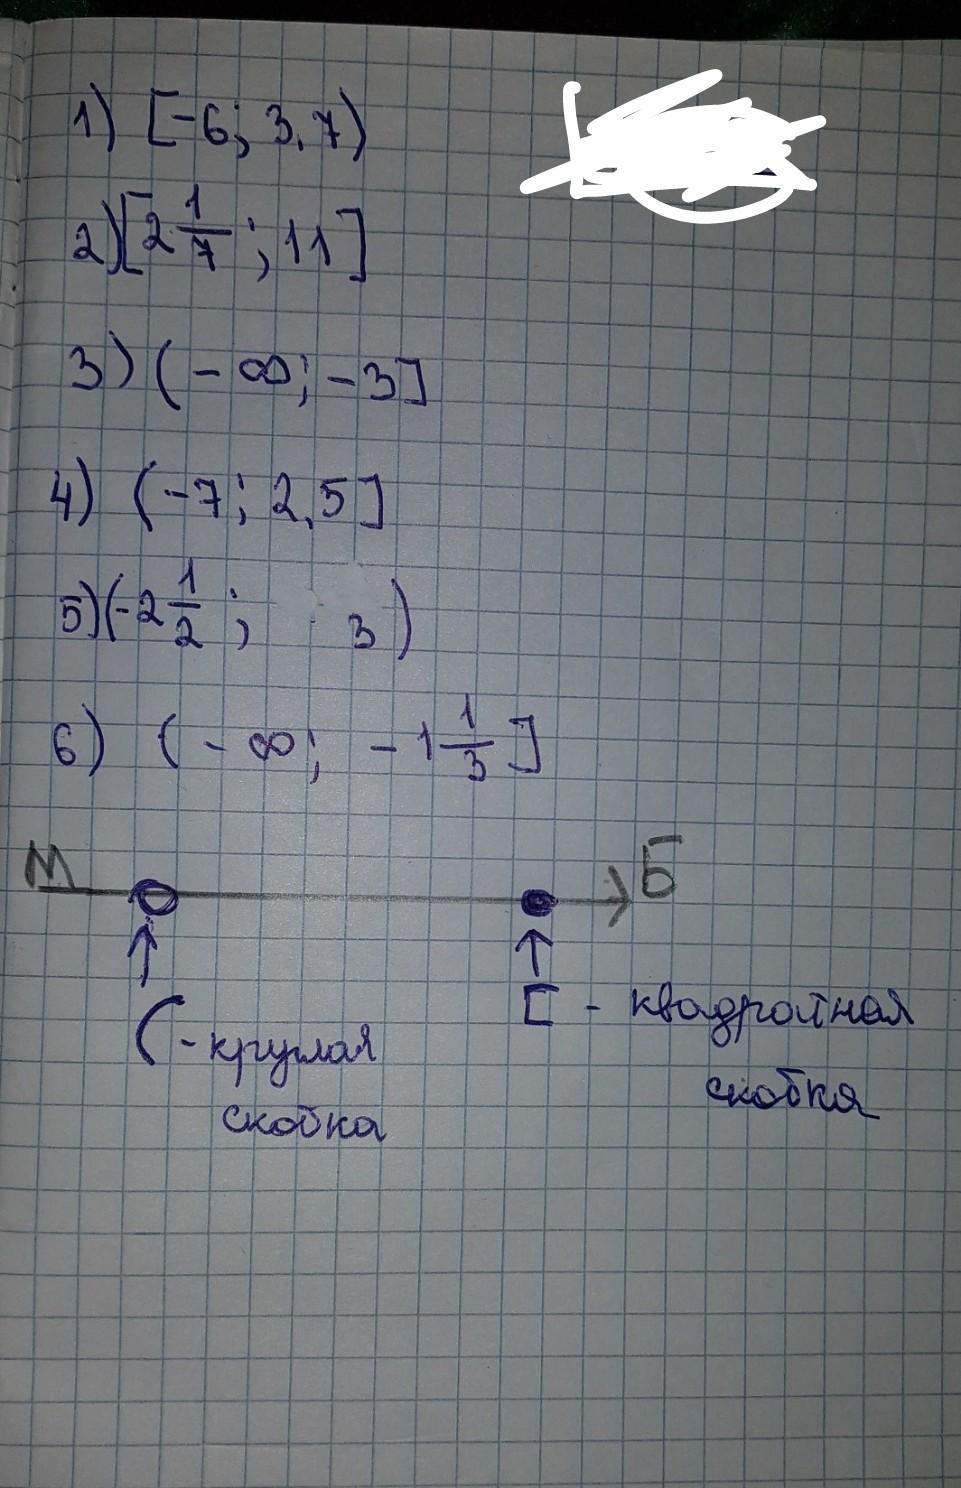 1) [-6; 3,7)
2) [2 1/7; 11]
3) (-∞; -3]
4) (-7; 2,5]
5) (-2 1/2; 3)
6) (-∞; -1 1/3]
М Б
( - круглая
скобка
[ - квадратная
скобка